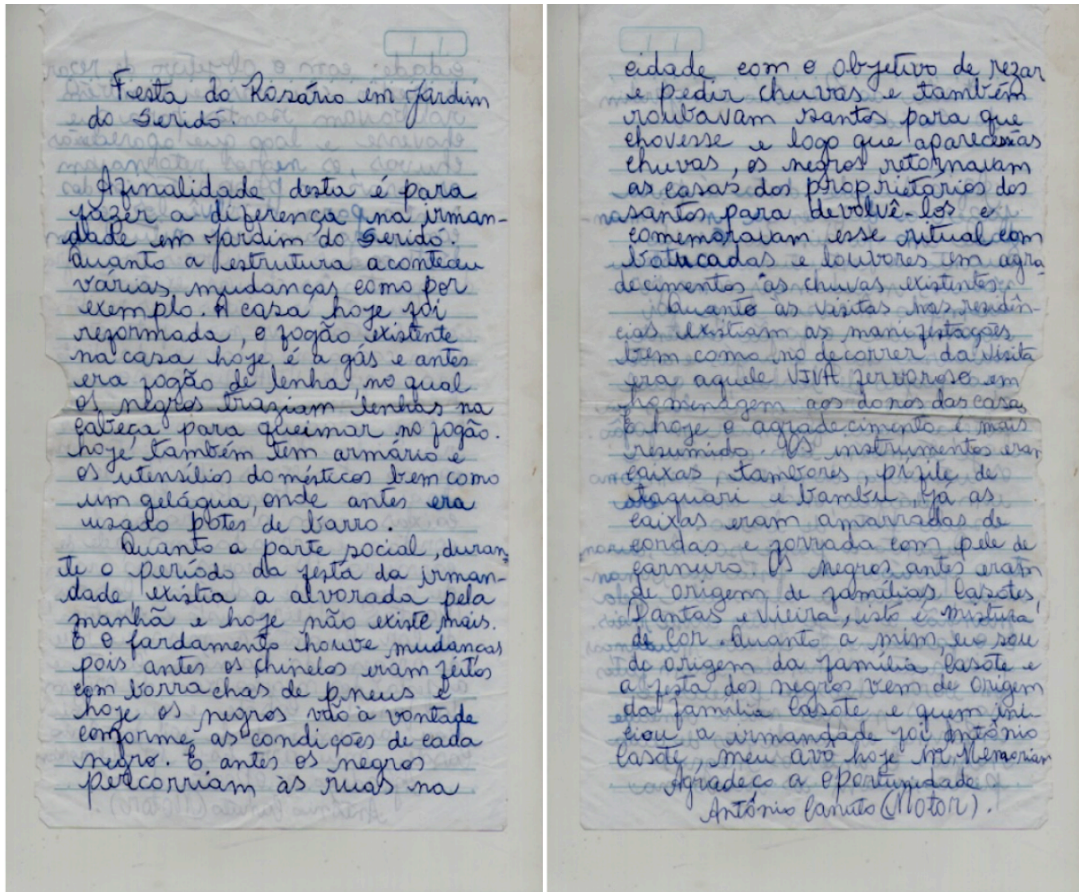 Festa do Rosário em Jardim
do Seridó
A finalidade desta é para
fazer a diferença na irman-
dade em Jardim do Seridó.
Quanto a estrutura aconteceu
várias mudanças como por
exemplo. A casa hoje foi
reformada, o fogão existente
na casa hoje é a gás e antes
era fogão de lenha, no qual
os negros traziam lenhas na
cabeça para queimar no fogão.
hoje também tem armário e
os utensílios domésticos bem como
um gelágua, onde antes era
usado potes de barro.
Quanto a parte social, duran-
te o período da festa da irman-
dade existia a alvorada pela
manhã e hoje não existe mais.
E o fardamento houve mudanças
pois antes os chinelos eram feitos
com borrachas de pneus e
hoje os negros vão à vontade
conforme as condições de cada
negro. E antes os negros
percorriam às ruas na
cidade com o objetivo de rezar
e pedir chuvas e também
roubavam santos para que
chovesse e logo que aparecessem as
chuvas, os negros retornavam
as casas dos proprietários dos
santos para devolvê-los e
comemoravam esse ritual com
batucadas e louvores em agra
decimentos às chuvas existentes.
Quanto às visitas nas residên-
cias existiam as manifestações
bem como no decorrer da visita
era aquele VIVA fervoroso em
homenagem aos donos das casas
E hoje o agradecimento é mais
resumido. Os instrumentos eram
caixas, tambores, pífile de
taquari e bambu. Já as
caixas eram amarradas de
cordas e forrada com pele de
carneiro. Os negros antes eram
de origem de famílias Casotes,
Dantas e Vieira, isto é mistura
de cor. Quanto a mim, eu sou
de origem da família Casote e
a festa dos negros vem de origem
da família Casote e quem ini-
ciou a irmandade foi Antônio
Casote, meu avô hoje in Memorian
Agradeço a oportunidade
Antônio Canuto (Motor).